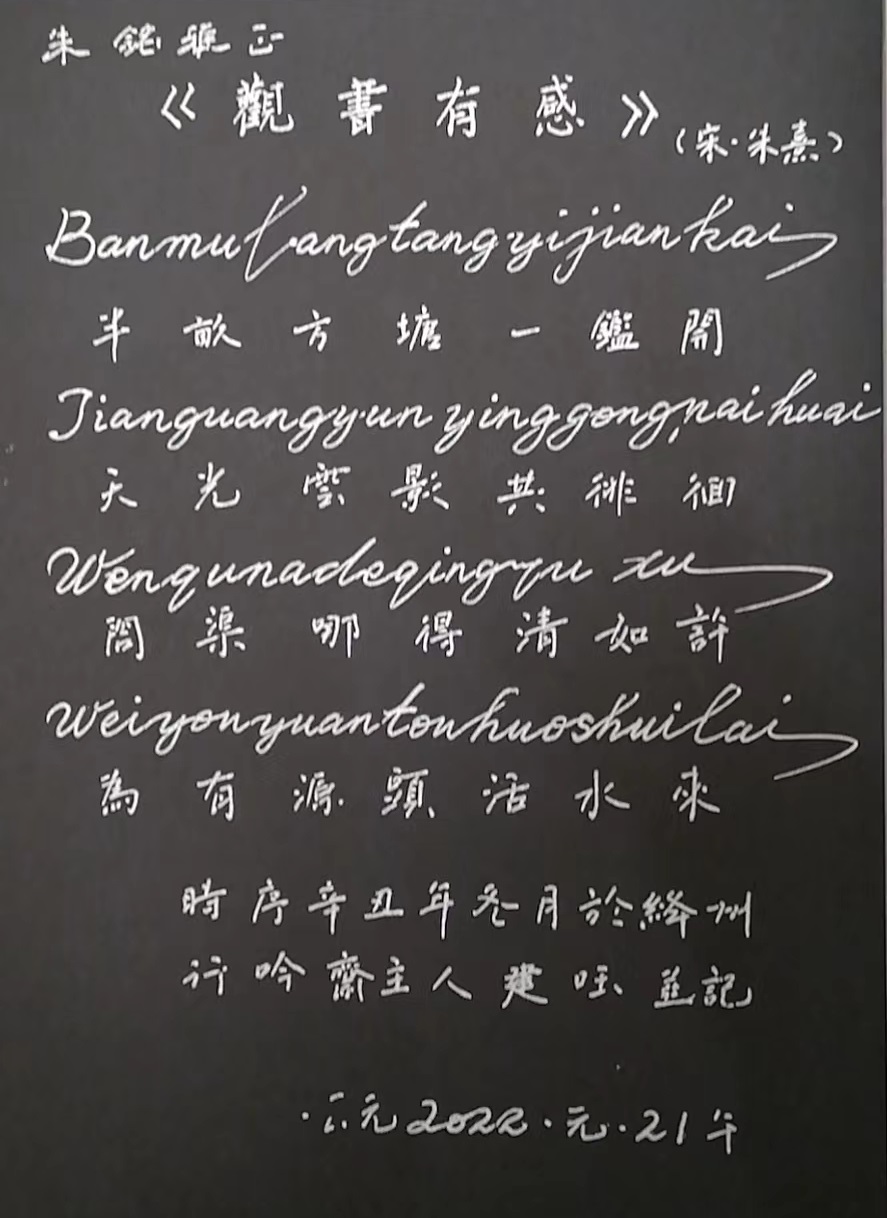 朱銘雅正
《觀書有感》
（宋·朱熹）
Banmufangtangyijiankai
半畝方塘一鑑開
Tianguangyunyinggongpaihuai
天光雲影共徘徊
Wenqunadeqingru xu
問渠哪得清如許
Weiyouyuantouhuoshuilai
為有源頭活水來
時序辛丑年冬月於絳州
行吟齋主人建 並記
元2022·元·21午